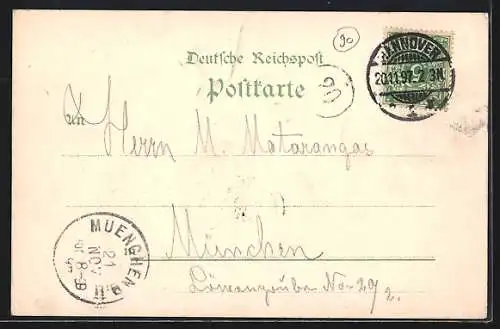 90
Deutsche Reichspost
Postkarte
90
HANNOVER
20.11.97. 2-3N.
5
An Herrn M. Matarangas
München
Löwengrube No 29 2.
MUENCHEN
21
NOV
8-9
II